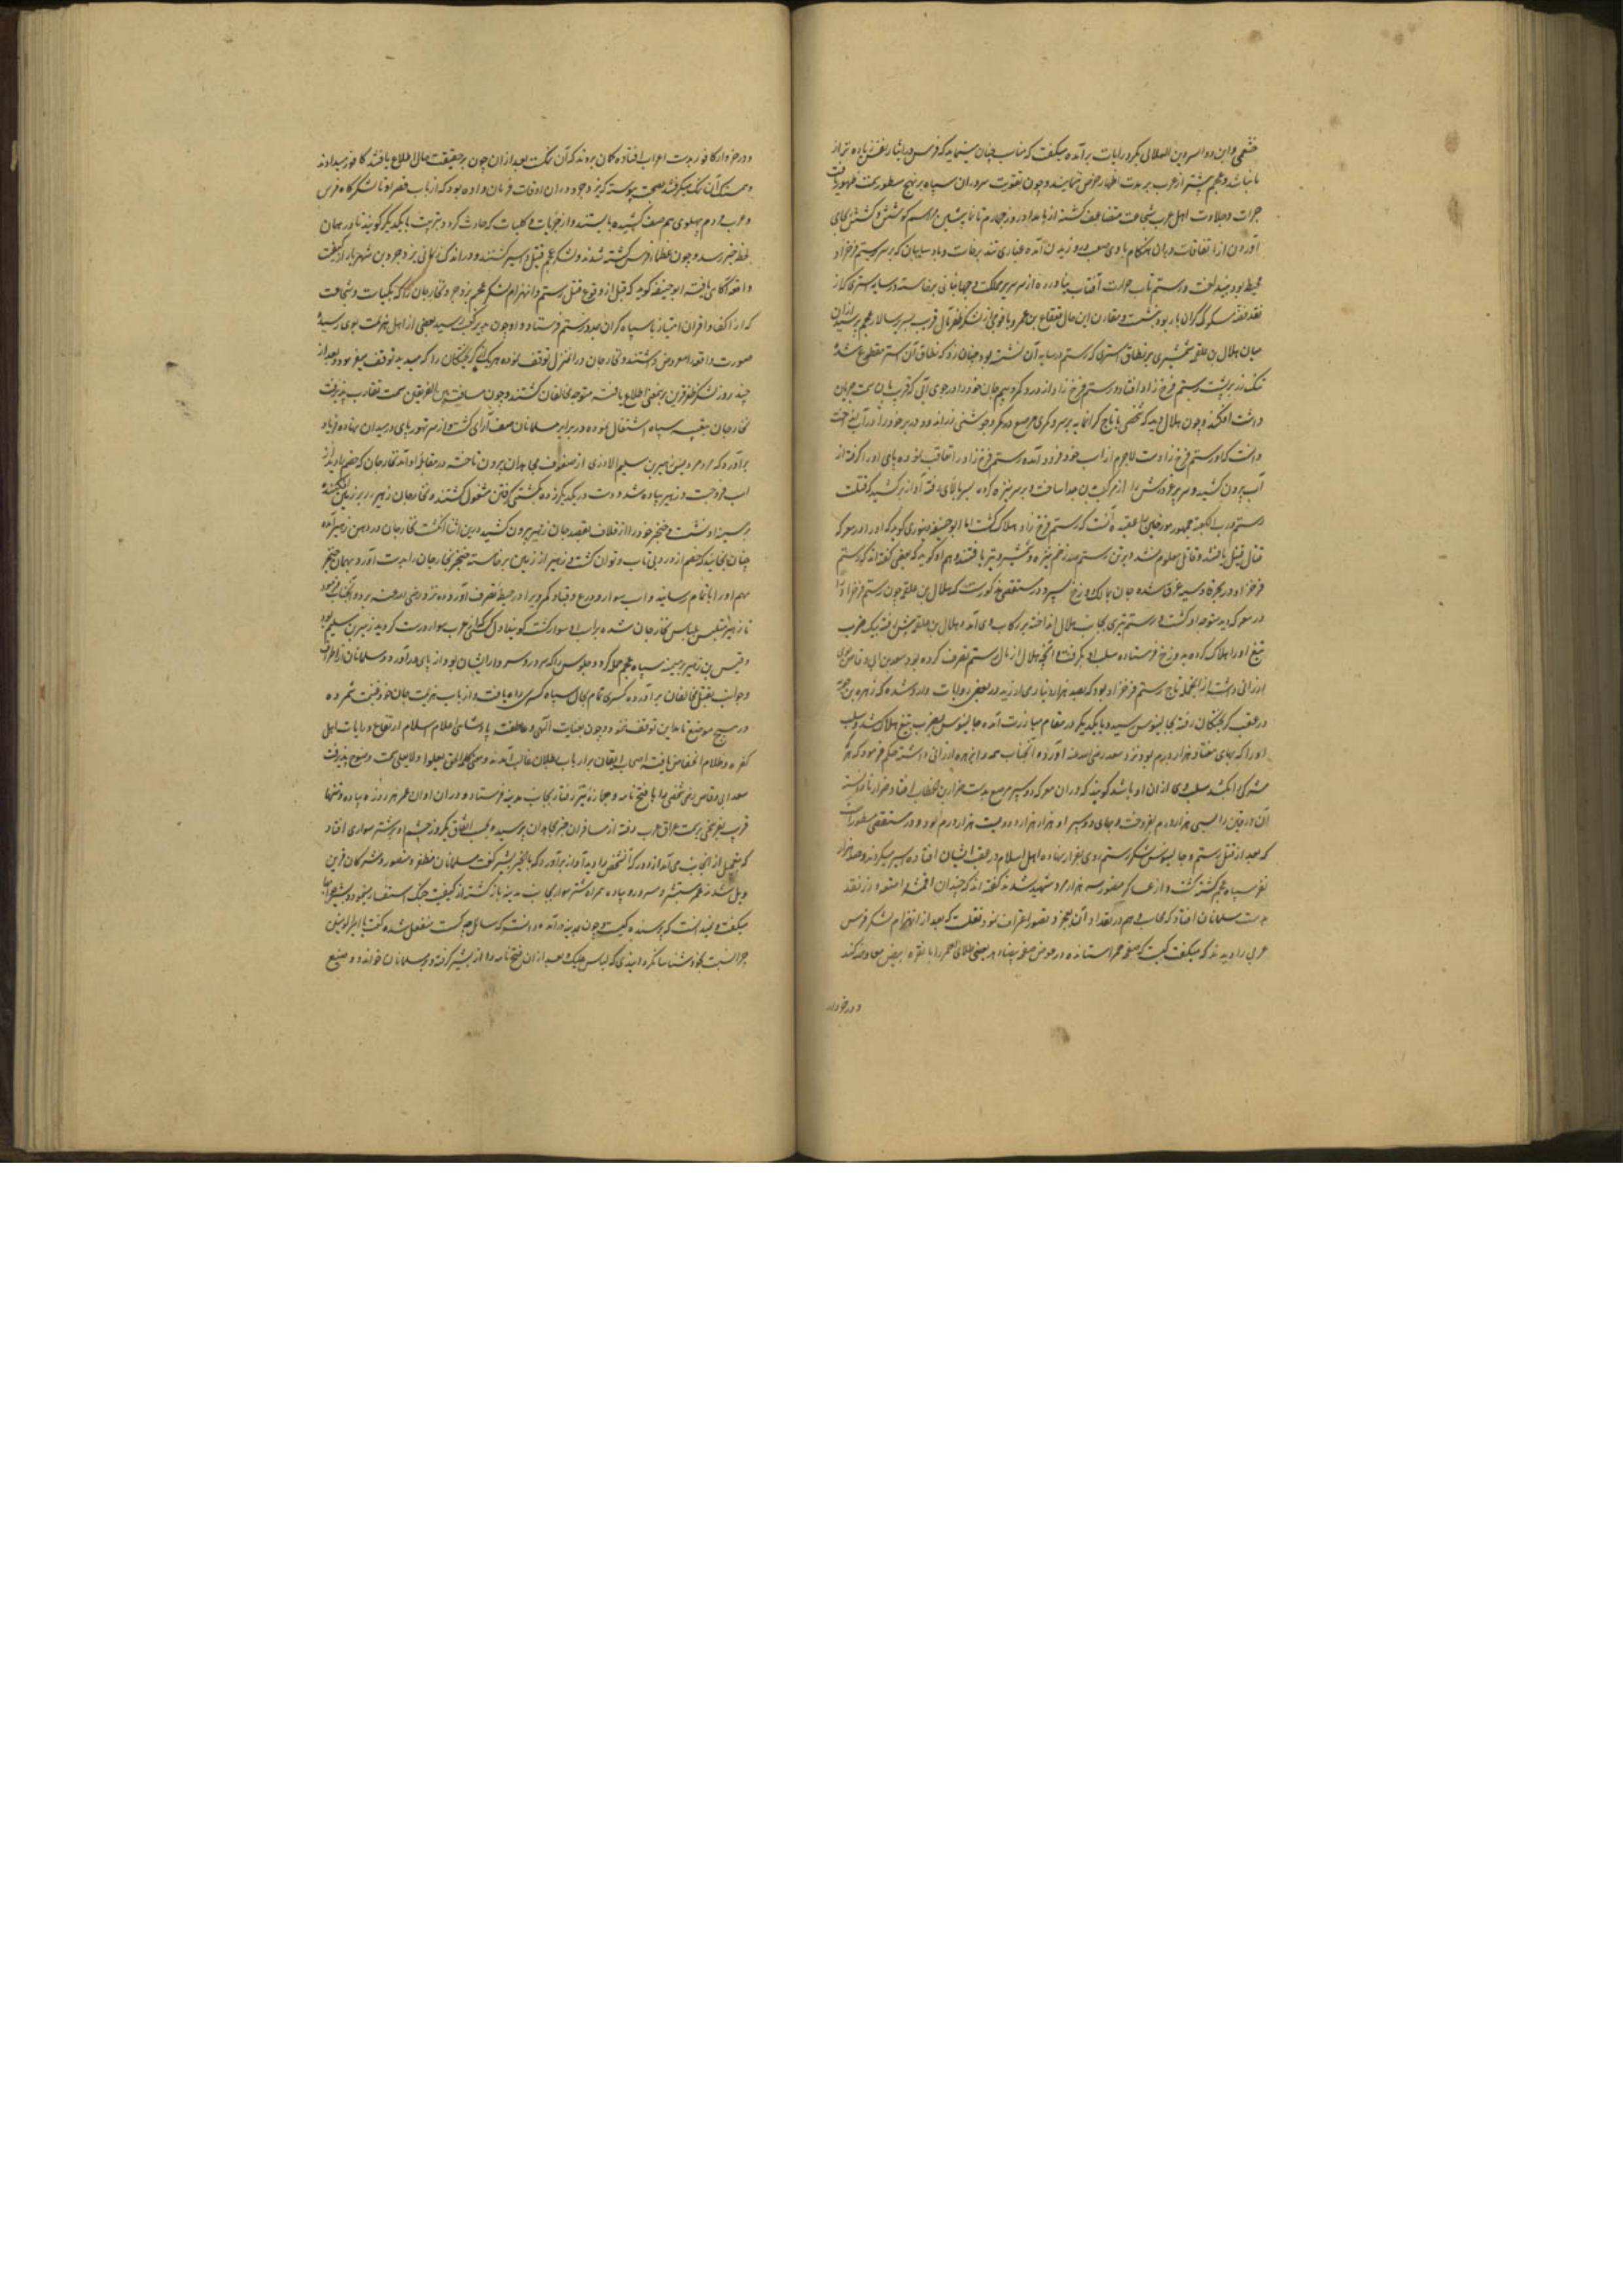 خثعمی و این دو امیر و بن الهلالی یکر و رایات برآمده میگفت که مناسب چنان مینماید که فرس در ایثار نفس زیاده تر از
ما نباشد و عجم پیشتر از عرب بر موت اظهار حرص ننمایند و چون بتقویت سروران سپاه بر نهج مسطور سمت ظهور یافت
جرات و جلادت اهل عرب بشجاعت متضاعف گشته از بامداد روز چهارم تا نماز پیشین مراسم کوشش و کشش بجای
آوردن از اتفاقات در آن هنگام بادی صعب وزیدن آمده غباری تند برخاست و باد سایبان که بر سر رستم فرخزاد
محیط بود بینداخت و رستم تاب حرارت آفتاب نیاورده از سر سریر مملکت و جهانبانی برخاسته در سایه استری که از
نقد نقره مسکوک گران بار بود بنشست و مقارن این حال قعقاع بن عمرو با فوجی از لشکر ظفر مآل قریب بسر سالار عجم رسید از آن
میان هلال بن علقمه شمشیری بر نطاق استری که رستم در سایه آن نشسته بود چنان زد که نطاق آن استر مقطوع شده
تنک زر بر پشت رستم فرخ زاد افتاد و رستم فرخ زاد از درد کمر و بیم جان خود را در جوی آبی که قریب بآن سمت جریان
داشت افکند و چون هلال دید که شخصی با تاج گرانمایه بر سر و کمری مرصع در کمر و جوشنی زراندود در بر خود را در آب انداخت
دانست که او رستم فرخ زاد است لاجرم از اسب خود فرود آمده رستم فرخ زاد را تعاقب نموده پای او را گرفته از
آب بیرون کشید و سر پرغرورش را از مرکب تن جدا ساخت و بر سر نیزه کرده بسر بالای رفته آواز برکشید که قتلت
رستم و رب الکعبة جمهور مورخین را عقیده آنست که رستم فرخ زاد هلاک گشت اما ابو حنیفه دینوری گوید که او را در معرکه
قتال قتیل یافتند و قاتل معلوم نشد و بر تن رستم صد زخم نیزه و شمشیر و تیر یافتند و هم او گوید که بعضی گفته اند که رستم
فرخزاد در بحر قادسیه غرق شده جان بمالک دوزخ سپرد و در مستقصی مذکورست که هلال بن علقمه چون رستم فرخزاد را
در معرکه دید متوجه او گشت و رستم تیری بجانب هلال انداخته بر رکاب وی آمد هلال بن علقمه پیش رفته بیک ضرب
تیغ او را هلاک کرده بدوزخ فرستاده سلب او بگرفت و آنچه هلال از مال رستم تصرف کرده بود سعد بن ابی وقاص بوی
ارزانی داشت از آنجمله تاج رستم فرخزاد بود که بصد هزار دینار می ارزید و در بعضی روایات وارد شده که زهره بن حویه
در عقب گریختگان رفته بجالینوس رسید و با یکدیگر در مقام مبارزت آمده جالینوس بضرب تیغ هلاک شد و سلب
او را که بهای هفتاد هزار درم بود نزد سعد رضی الله عنه آورده آنجناب همه را بزهره ارزانی داشته حکم فرمود که هر
مشرکی را بکشد سلب وی از آن او باشد گویند که در آن معرکه سپر مرصع بدست ضرار بن خطاب افتاد و ضرار نادانسته
آن درفش را بسی هزار درم بفروخت و بهای دو سپر او هزار هزار و دویست هزار درم بود و در مستقصی مسطورست
که بعد از قتل رستم و جالینوس لشکر رستم روی بفرار نهاده اهل اسلام در عقب ایشان افتاده سپر میکردند و صد هزار
نفر سپاه عجم کشته گشت و از عساکر منصور سه هزار مرد شهید شدند گفته اند که چندان اقمشه و امتعه و زر نقد
بدست مسلمانان افتاد که محاسب وهم در تعداد آن بعجز و قصور اعتراف نمود نقلست که بعد از انهزام لشکر فرس
عربی را دیدند که میگفت کیست که صفحه حمراء بستاند و در عوض صفحه بیضاء بدهد یعنی طلای احمر را با نقره ابیض معاوضه کند
و در خروار
و در خروار کافور بدست اعراب افتاده گمان بردند که آن نمکست بعد از آن چون بر حقیقت حال اطلاع یافتند کافور میدادند
و همسنگ آن نمک میگرفتند بصحت پیوسته که یزدجرد در آن اوقات فرمان داده بود که از باب قصر او تا لشکرگاه فرس
و عرب مردم پهلوی هم صف کشیده بایستند و از جزئیات و کلیات که حادث گردد بترتیب با یکدیگر گویند تا در همان
لحظه خبر رسد و چون عظماء فرس کشته شدند و لشکر عجم قتیل و اسیر گشتند در اندک زمانی یزدجرد بن شهریار از کیفیت
واقعه آگاهی یافته ابو حنیفه گوید که قبل از وقوع قتل رستم و انهزام لشکر عجم یزدجرد نخارجان را که بکیاست و شجاعت
که از اکفا و اقران امتیاز با سپاه گران بمدد رستم فرستاد و او چون بدیر کعب رسید بعضی از اهل هزیمت بوی رسیده
صورت واقعه معروض داشتند و نخارجان در آن منزل توقف نموده هر یک از گریختگان را که میدید توقف میفرمود و بعد از
چند روز لشکر ظفر قرین بر معنی اطلاع یافته متوجه مخالفان گشتند و چون مسافت بین الفریقین سمت تقارب پذیرفت
نخارجان بتعبیه سپاه اشتغال نموده در برابر مسلمانان صف آرای گشت و از سر تهور پای در میدان نهاده فریاد
برآورد که مرد و مرد زهیر بن سلیم الازدی از صفوف مجاهدان بیرون تاخته در مقابل او آمد نخارجان که خصم را دید از
اسب فرو جست و زهیر پیاده شد و دست در یکدیگر زده بکشتی گرفتن مشغول گشتند نخارجان زهیر را بر زمین افکنده
بر سینه او نشست و خنجر خود را از غلاف بقصد جان زهیر بیرون کشید در این اثنا انگشت نخارجان در دهن زهیر آمده
چنان بخایید که خصم از درد بی تاب و توان گشت و زهیر از زمین برخاسته خنجر نخارجان را بدست آورد و بهمان خنجر
مهم او را باتمام رسانید و اسب سوار و درع و قبا و کمر ویرا در حیطه تصرف آورده نزد سعد رضی الله عنه برد و آنجناب فرمود
تا زهیر متلبس بلباس نخارجان شده بر اسب او سوار گشت گویند اول کسی که از عرب سوار در دست کرد زهیر بن سلیم بود
و قیس بن زهیر بر میمنه سپاه عجم حمله کرده و جلوس را که سرور و سردار ایشان بود از پای درآورد و مسلمانان از اطراف
و جوانب بقتل مخالفان برآورده کسری تمام بحال سپاه کسری راه یافت و از باب هزیمت جان خود غنیمت شمرده
در هیچ موضع تا مداین توقف ننمود و چون بعنایت الهی و عاطفت پادشاهی اعلام اسلام ارتفاع و رایات اهل
کفر و ظلام انخفاض یافت اصحاب ایقان بر ارباب بطلان غالب آمدند و معنی کلمة الحق یعلو و لا یعلی سمت وضوح پذیرفت
سعد ابی وقاص رضی شخصی را با فتح نامه و جمازه تیز رفتار بجانب مدینه فرستاد و در آن اوان عمر هر روزه پیاده و تنها
قریب بفرسخی بسمت عراق عرب رفته از مسافران خبر مجاهدان پرسیدی بحسب اتفاق یکروز چشم او بر شتر سواری افتاد
که بتعجیل از آنجانب می آمد از دور که آنشخص را دید آواز برآورد که ما الخبر بشیر گفت مسلمانان مظفر و منصور و مشرکان قرین
ویل شدند عمر مستبشر و مسرور پیاده همراه شتر سوار بجانب مدینه بازگشته از کیفیت جنگ استفسار مینمود و بشیر جوابها
میگفت و نمیدانست که پرسنده کیست و چون بمدینه درآمد و دانست که سائل چه کس است منفعل شده گفت یا امیر المومنین
چرا نسبت بخود شناسا نکردانیدی گفت لا باس علیک و بعد از آن فتح نامه را از بشیر گرفته و بر مسلمانان خواند و وضیع